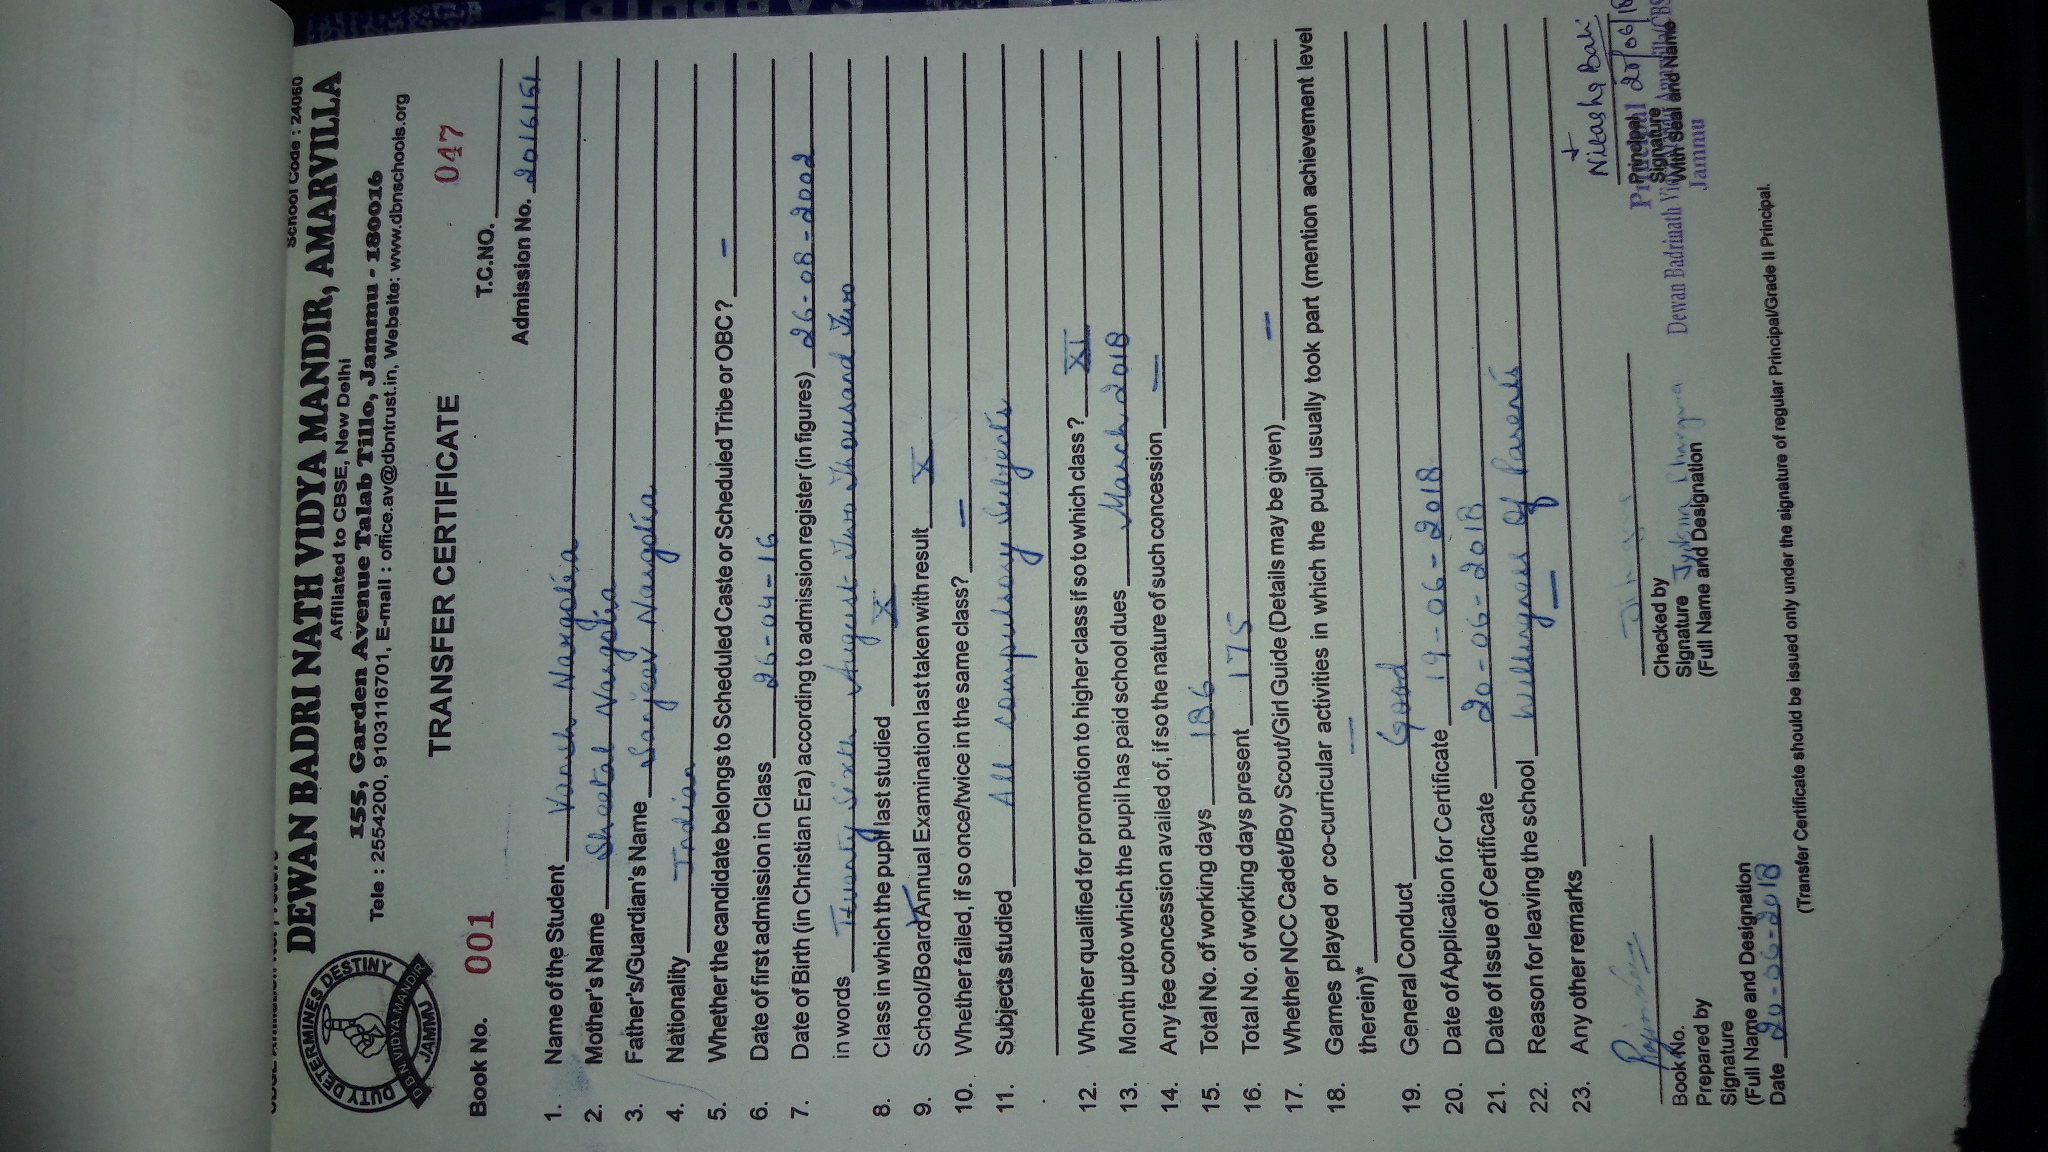 School Code : 24060
DEWAN BADRI NATH VIDYA MANDIR, AMARVILLA
Affiliated to CBSE, New Delhi
155, Garden Avenue Talab Tillo, Jammu - 180016
Tele : 2554200, 9103116701, E-mail : office.av@dbntrust.in, Website: www.dbnschools.org
DUTY DETERMINES DESTINY
DBN VIDYA MANDIR
JAMMU
TRANSFER CERTIFICATE
Book No. 001
047
T.C.NO.
Admission No. 2016151
1. Name of the Student Vansh Nargotra
2. Mother's Name Sheetal Nargotra
3. Father's/Guardian's Name Sanjeev Nargotra
4. Nationality Indian
5. Whether the candidate belongs to Scheduled Caste or Scheduled Tribe or OBC? -
6. Date of first admission in Class 26-04-16
7. Date of Birth (in Christian Era) according to admission register (in figures) 26-08-2002
in words Twenty Sixth August Two Thousand Two
8. Class in which the pupil last studied X
9. School/Board Annual Examination last taken with result X
10. Whether failed, if so once/twice in the same class? -
11. Subjects studied All compulsory Subjects
12. Whether qualified for promotion to higher class if so to which class? XI
13. Month upto which the pupil has paid school dues March 2018
14. Any fee concession availed of, if so the nature of such concession -
15. Total No. of working days 186
16. Total No. of working days present 175
17. Whether NCC Cadet/Boy Scout/Girl Guide (Details may be given) -
18. Games played or co-curricular activities in which the pupil usually took part (mention achievement level
therein)* -
19. General Conduct Good
20. Date of Application for Certificate 19-06-2018
21. Date of Issue of Certificate 20-06-2018
22. Reason for leaving the school Willingness Of Parents
23. Any other remarks -
Book No.
Prepared by
Signature
(Full Name and Designation
Date 20-06-2018
Checked by
Signature Jyotsna
(Full Name and Designation
20/06/18
Principal
Signature
With Seal and Name
Principal
Dewan Badrinath
Jammu
(Transfer Certificate should be issued only under the signature of regular Principal/Grade II Principal.